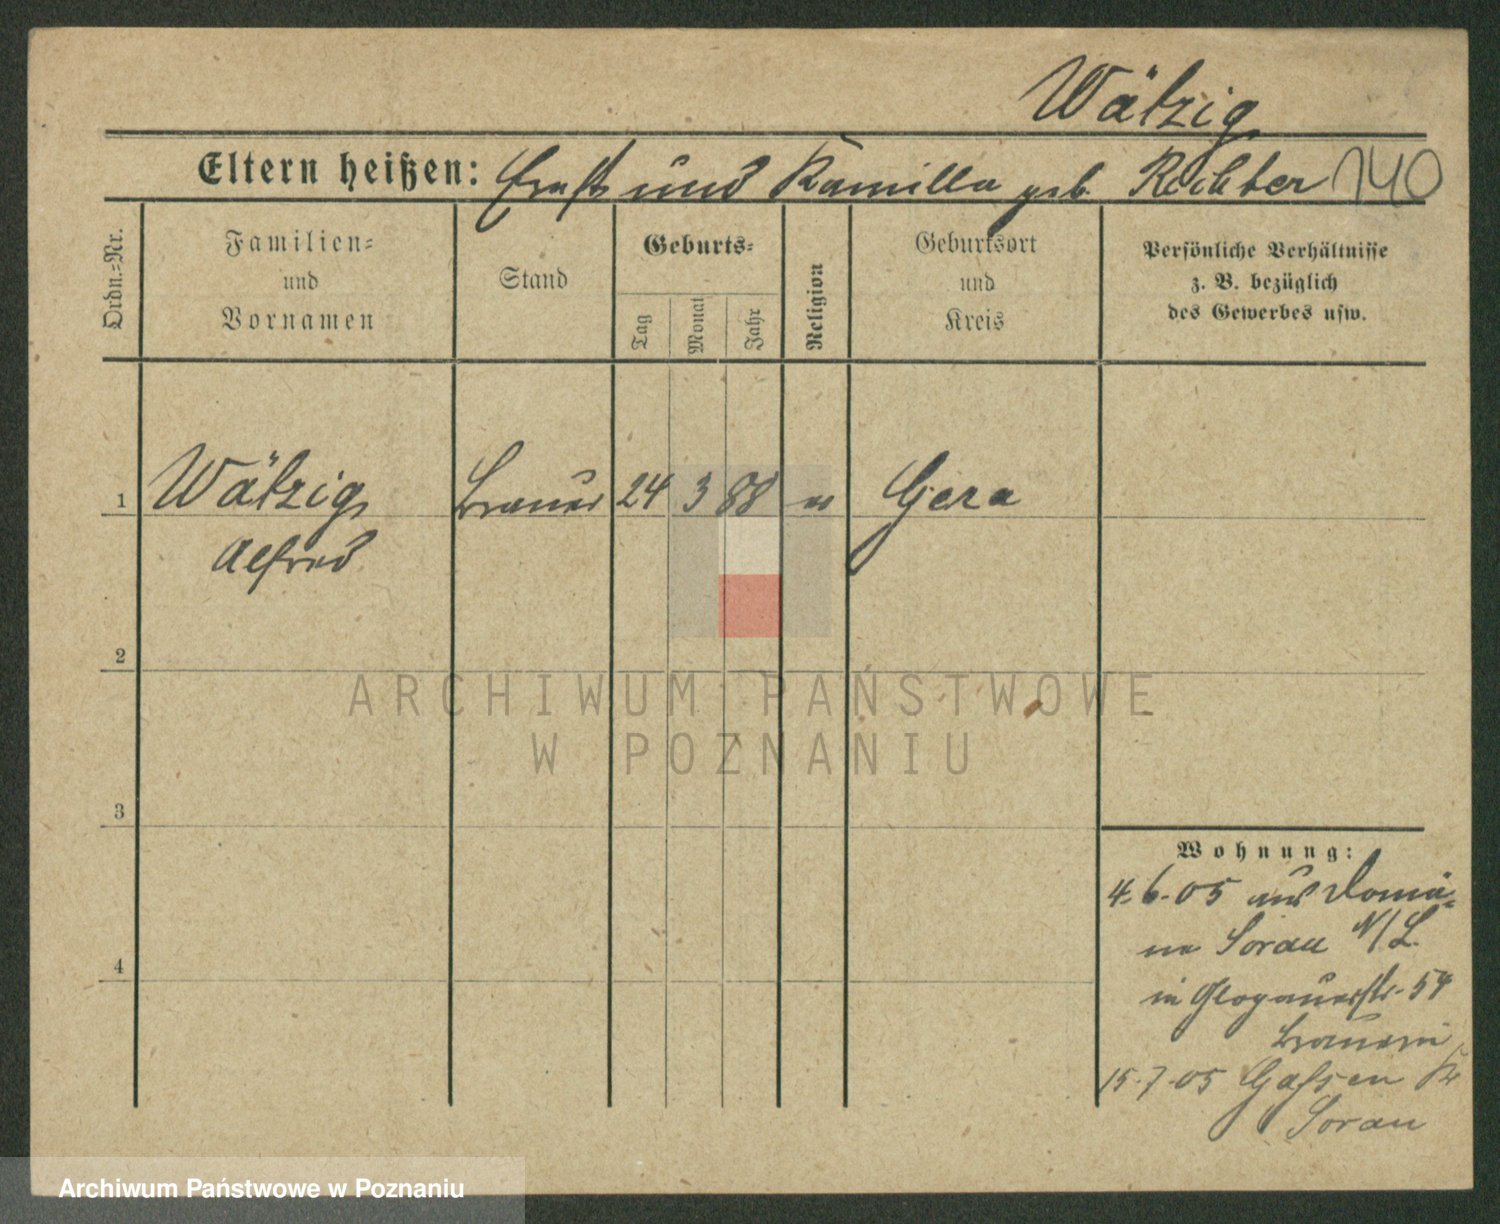 Wätzig
Eltern heißen: Ernst und Kamilla geb. Richter 140
Ordn.-Nr.
Familien-
und
Vornamen
Stand
Geburts-
Tag
Monat
Jahr
Religion
Geburtsort
und
Kreis
Persönliche Verhältnisse
z. B. bezüglich
des Gewerbes usw.
1 Wätzig Brauer 24 3 88 ev Gera
Alfred
2
3
4
Wohnung:
4.6.05 aus Domä-
ne Sorau N/L.
in Glogauerstr. 54
Brauerei
15.7.05 Gassen Kr
Sorau
ARCHIWUM PAŃSTWOWE
W POZNANIU
Archiwum Państwowe w Poznaniu